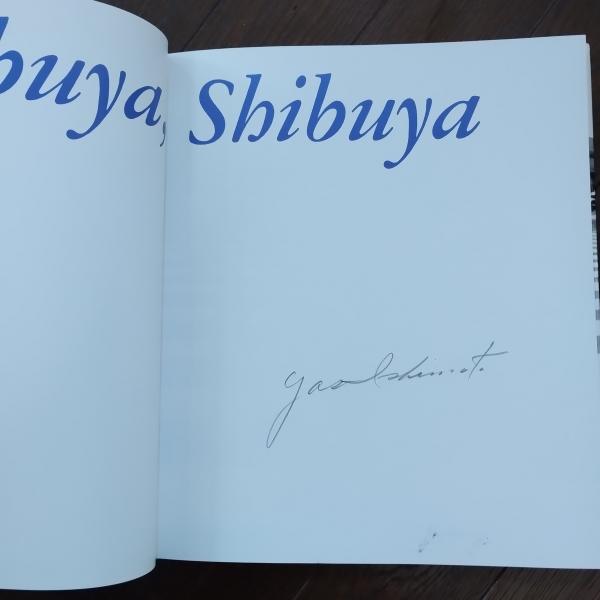 buya, Shibuya
Yas Ishimoto